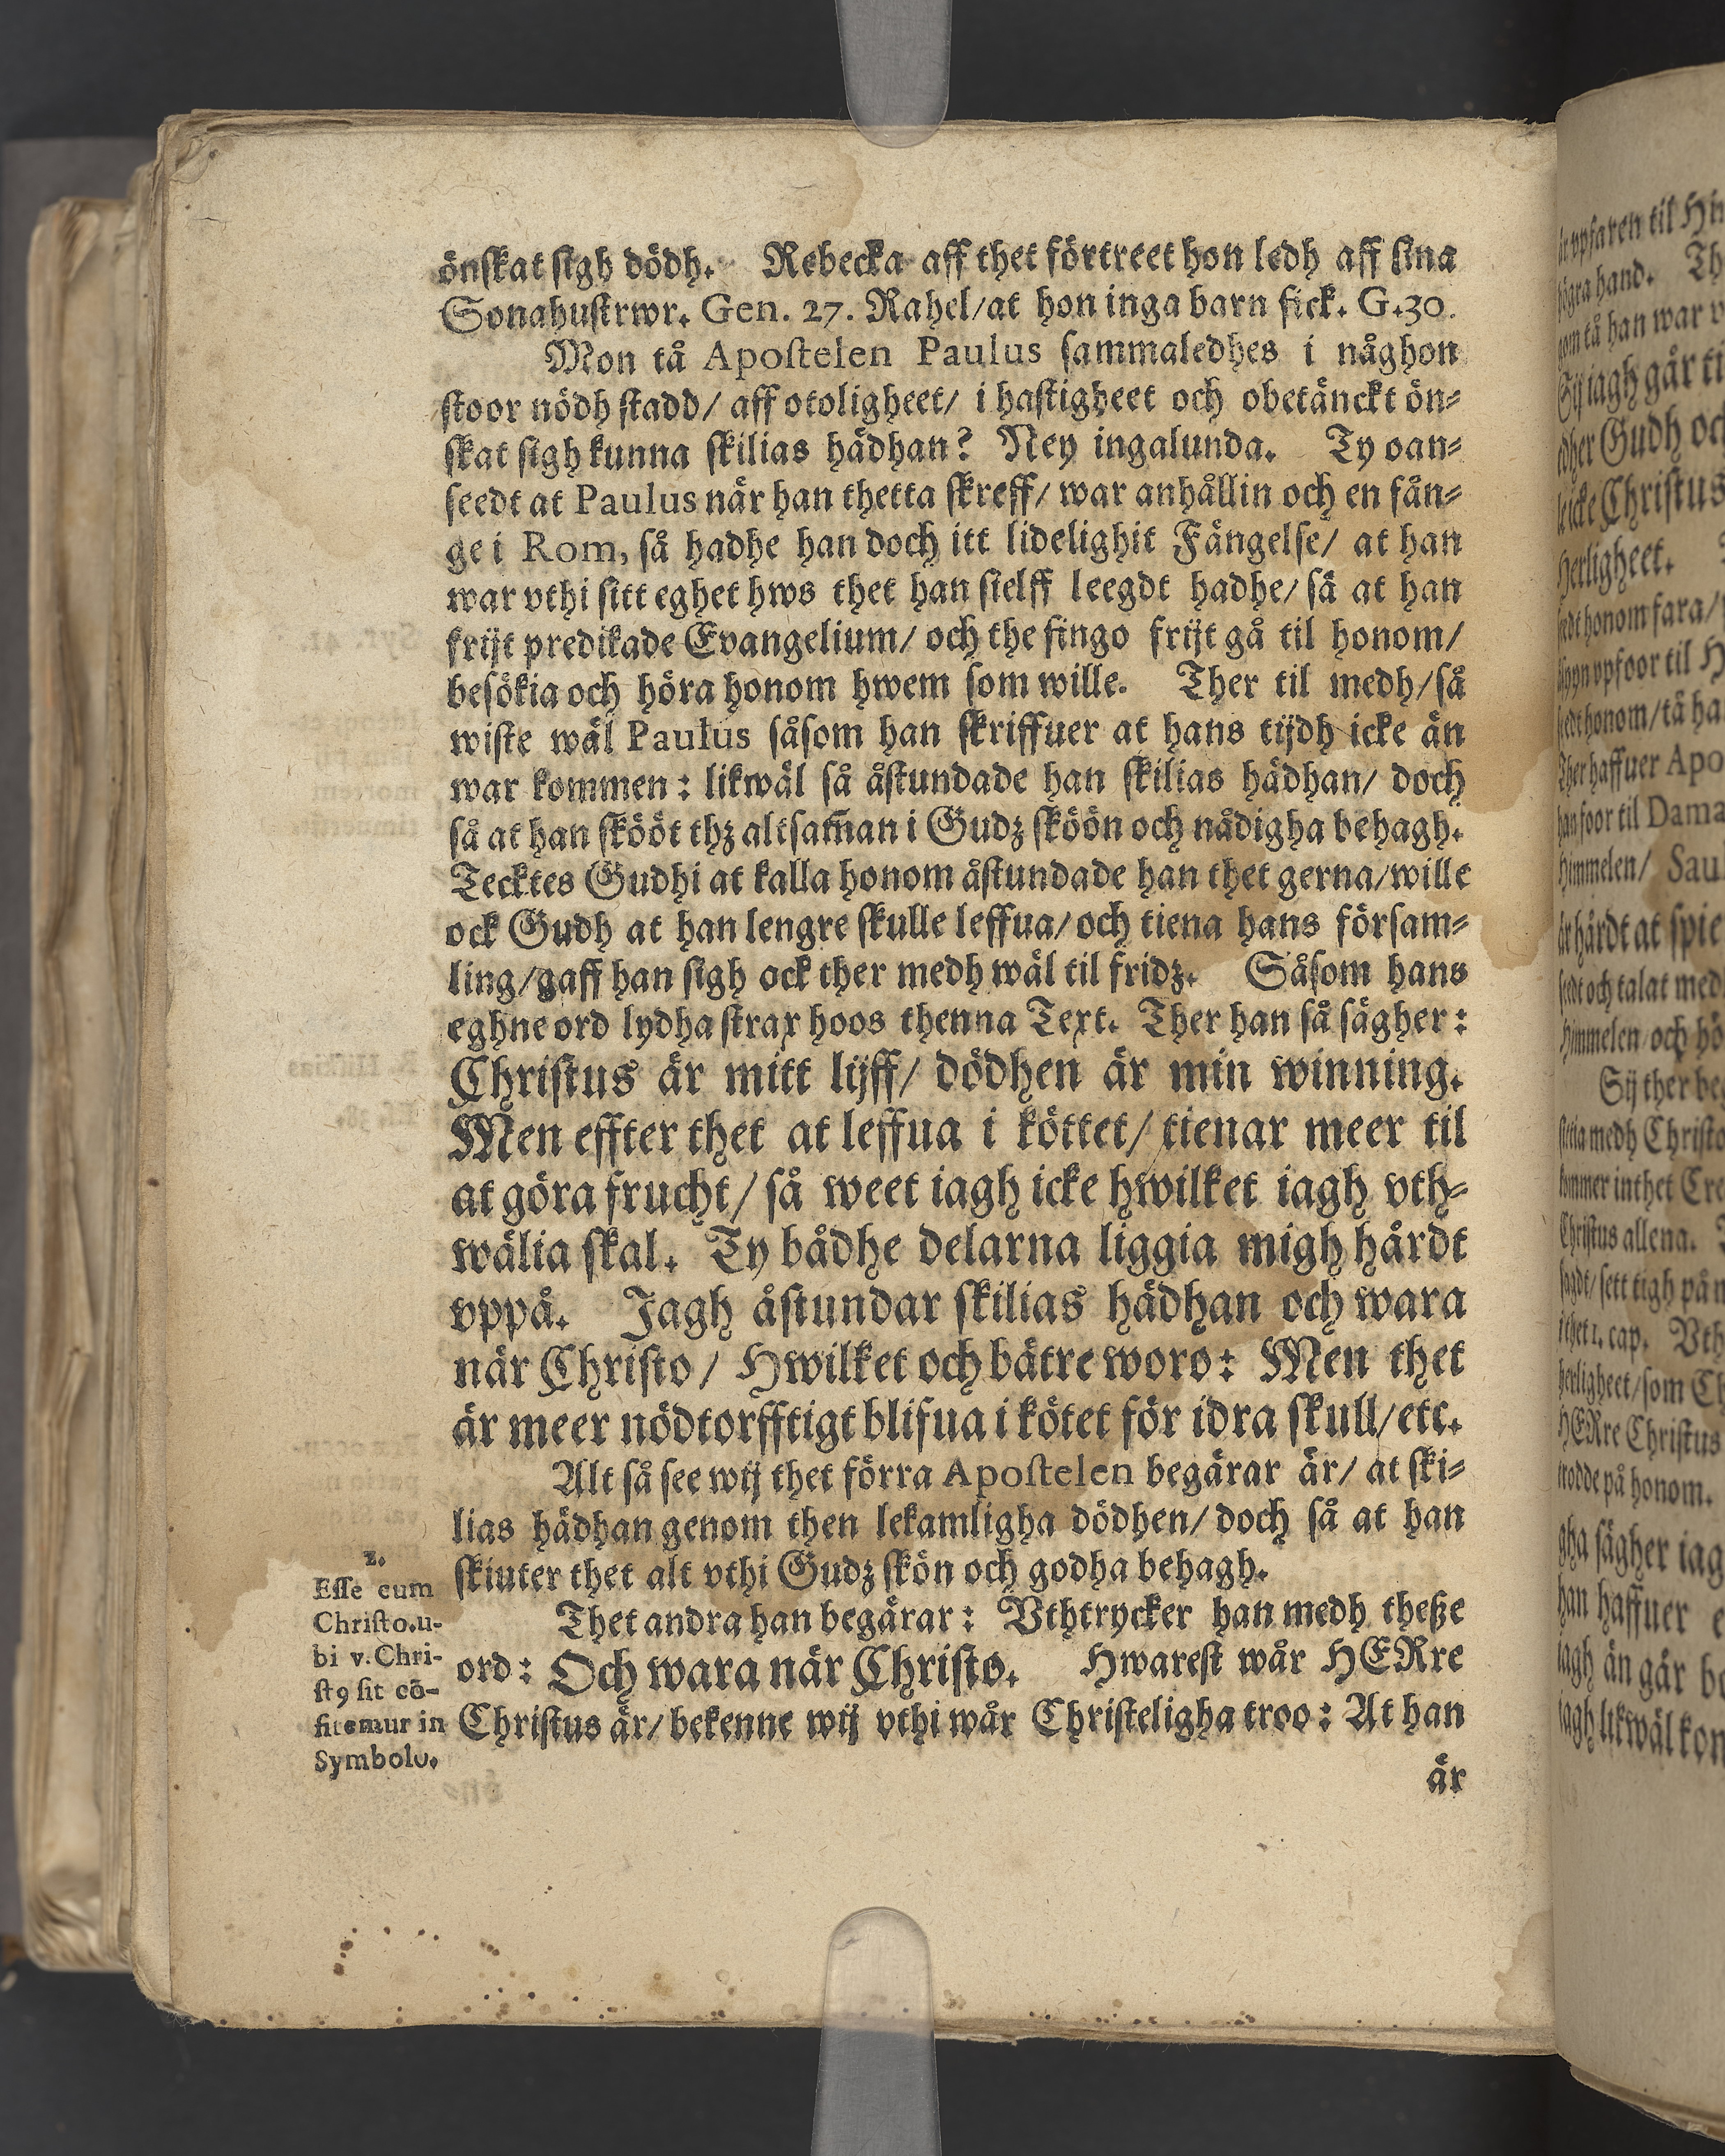 önskat sigh dödh. Rebecka aff thet förtreet hon ledh aff sina
Sonahustrwr. Gen. 27. Rahel/at hon inga barn fick. G.30.
Mon tå Apostelen Paulus sammaledhes i någhon
stoor nödh stadd/ aff otoligheet/ i hastigheet och obetänckt ön-
skat sigh kunna skilias hädhan? Ney ingalunda. Ty oan-
seedt at Paulus när han thetta skreff/ war anhållin och en fån-
ge i Rom, så hadhe han doch itt lidelighit Fängelse/ at han
war vthi sitt eghet hws thet han sielff leegdt hadhe/ så at han
frijt predikade Evangelium/ och the fingo frijt gå til honom/
besökia och höra honom hwem som wille. Ther til medh/så
wiste wäl Paulus såsom han skriffuer at hans tijdh icke än
war kommen: likwäl så åstundade han skilias hädhan/ doch
så at han skööt thz altsam̃an i Gudz sköön och nådigha behagh.
Tecktes Gudhi at kalla honom åstundade han thet gerna/wille
ock Gudh at han lengre skulle leffua/och tiena hans försam-
ling/gaff han sigh ock ther medh wäl til fridz. Såsom hans
eghne ord lydha strax hoos thenna Text. Ther han så sägher:
Christus är mitt lijff/ dödhen är min winning.
Men effter thet at leffua i köttet/ tienar meer til
at göra frucht/ så weet iagh icke hwilket iagh vth-
wälia skal. Ty bådhe delarna liggia migh hårdt
vppå. Jagh åstundar skilias hädhan och wara
när Christo/ Hwilket och bätre woro: Men thet
är meer nödtorfftigt blifua i kötet för idra skull/etc.
Alt så see wij thet förra Apostelen begärar är/ at ski-
lias hädhan genom then lekamligha dödhen/ doch så at han
skiuter thet alt vthi Gudz skön och godha behagh.
Thet andra han begärar: Vthtrycker han medh theße
ord: Och wara när Christo. Hwarest wår HERre
Christus är/ bekenne wij vthi wår Christeligha troo: At han
är
2.
Esse cum
Christo.u-
bi v. Chri-
st9 sit cō-
fitemur in
Symbolo.